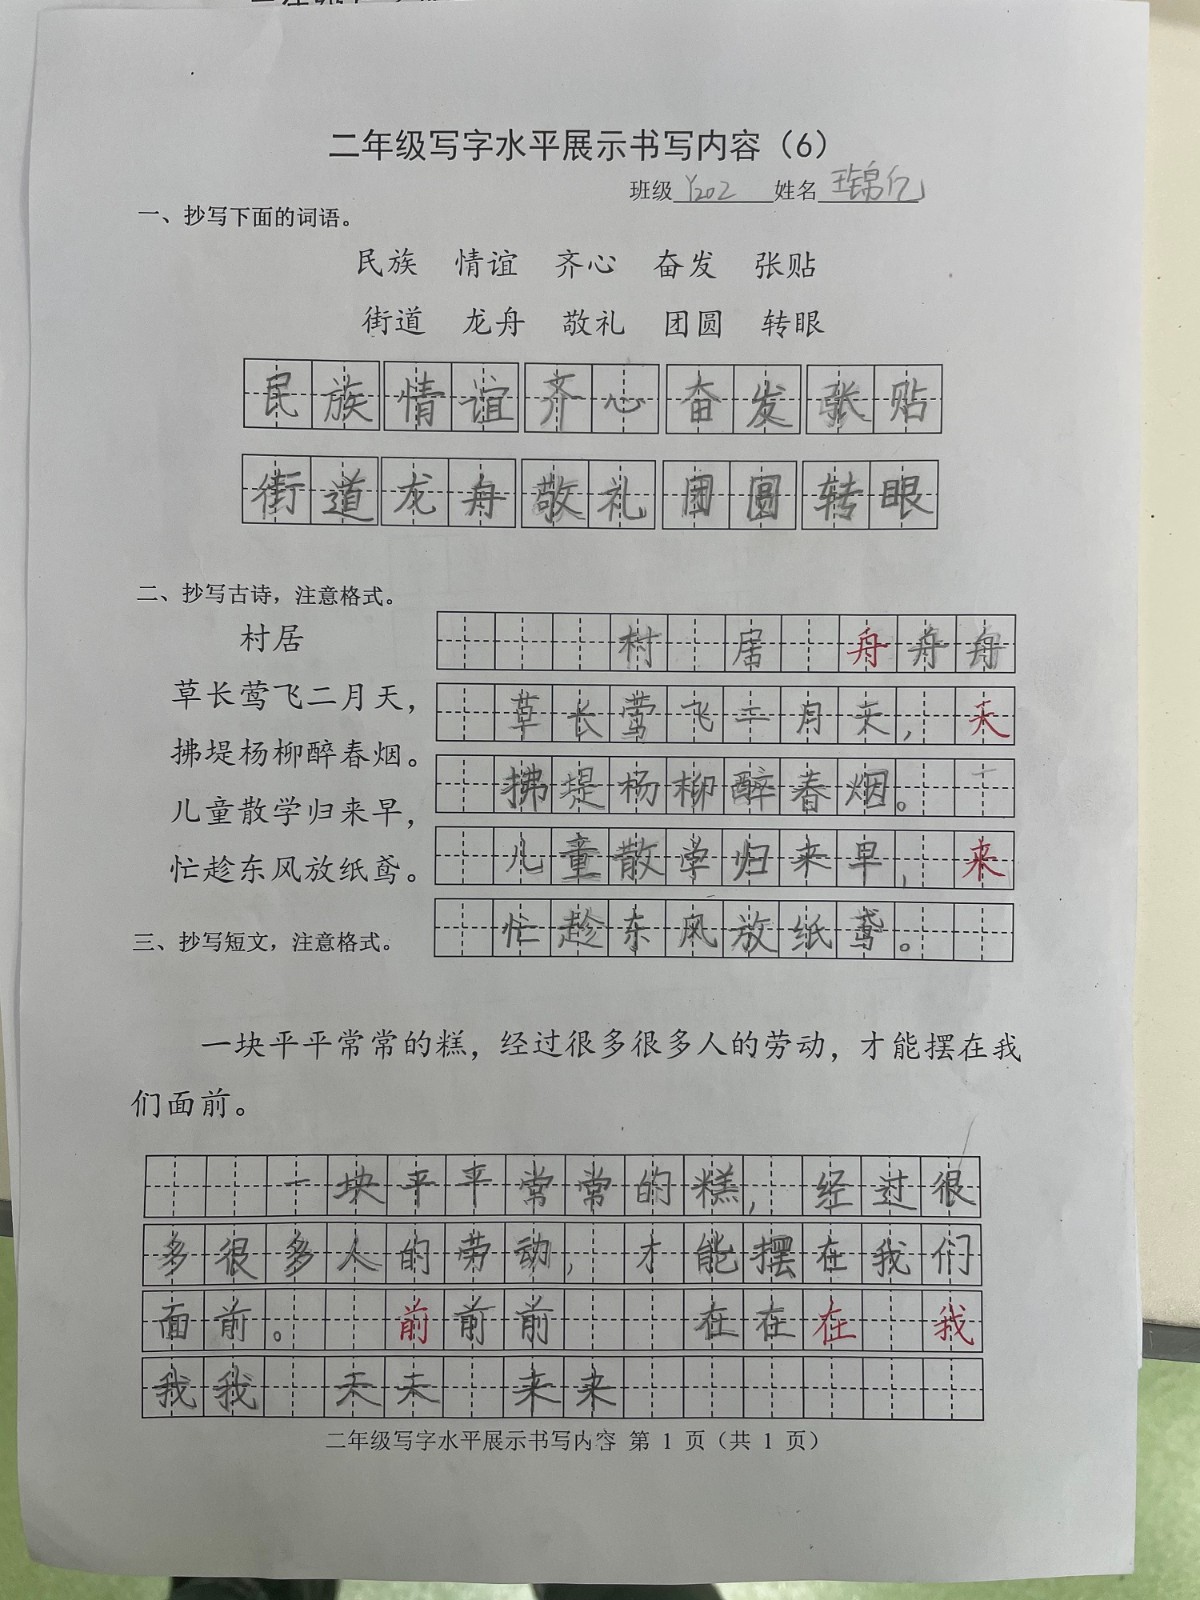 二年级写字水平展示书写内容（6）
班级 Y202 姓名 王锦亿
一、抄写下面的词语。
民族 情谊 齐心 奋发 张贴
街道 龙舟 敬礼 团圆 转眼
民族 情谊 齐心 奋发 张贴
街道 龙舟 敬礼 团圆 转眼
二、抄写古诗，注意格式。
村居
草长莺飞二月天，
拂堤杨柳醉春烟。
儿童散学归来早，
忙趁东风放纸鸢。
村居 舟舟舟
草长莺飞二月天， 天
拂堤杨柳醉春烟。
儿童散学归来早， 来
忙趁东风放纸鸢。
三、抄写短文，注意格式。
一块平平常常的糕，经过很多很多人的劳动，才能摆在我
们面前。
一块平平常常的糕，经过很
多很多人的劳动，才能摆在我们
面前。 前前前 在在在 我
我我 天天 来来
二年级写字水平展示书写内容 第 1 页（共 1 页）